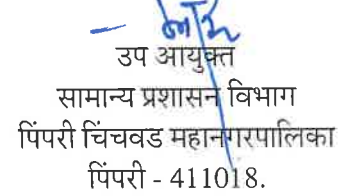 उप आयुक्त
सामान्य प्रशासन विभाग
पिंपरी चिंचवड महानगरपालिका
पिंपरी - 411018.